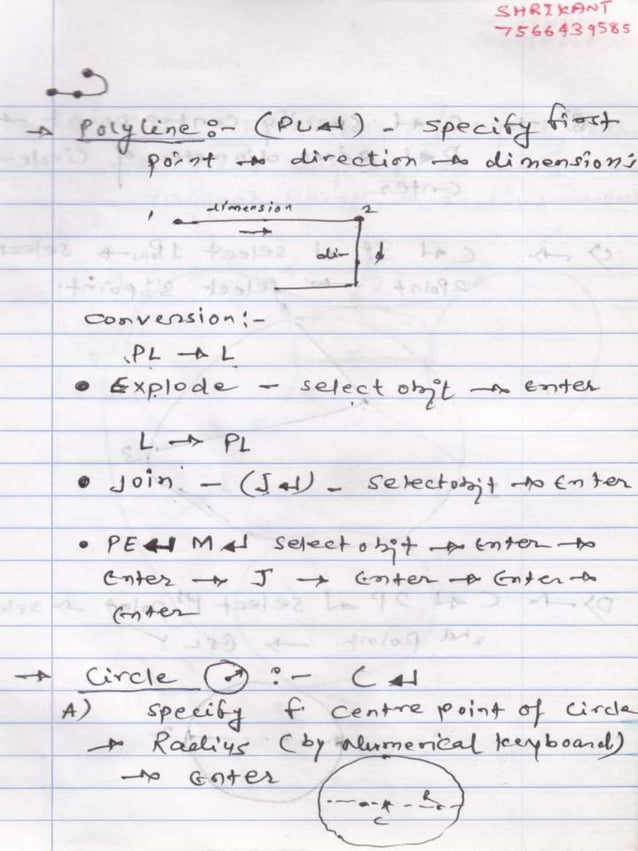 SHRIKANT
7566439585
→ Polyline :- (PL↲) - specify first
point → direction → dimension;
1 dimension 2
→
dim ↓
conversion :-
PL → L
• Explode - select objt → enter
L → PL
• Join - (J↲) - select objt → Enter
• PE↲ M↲ select objt → Enter →
Enter → J → Enter → Enter →
Enter
→ Circle :- C↲
A) specify f. centre point of circle
→ Radius (by Numerical keyboard)
→ Enter
R
C